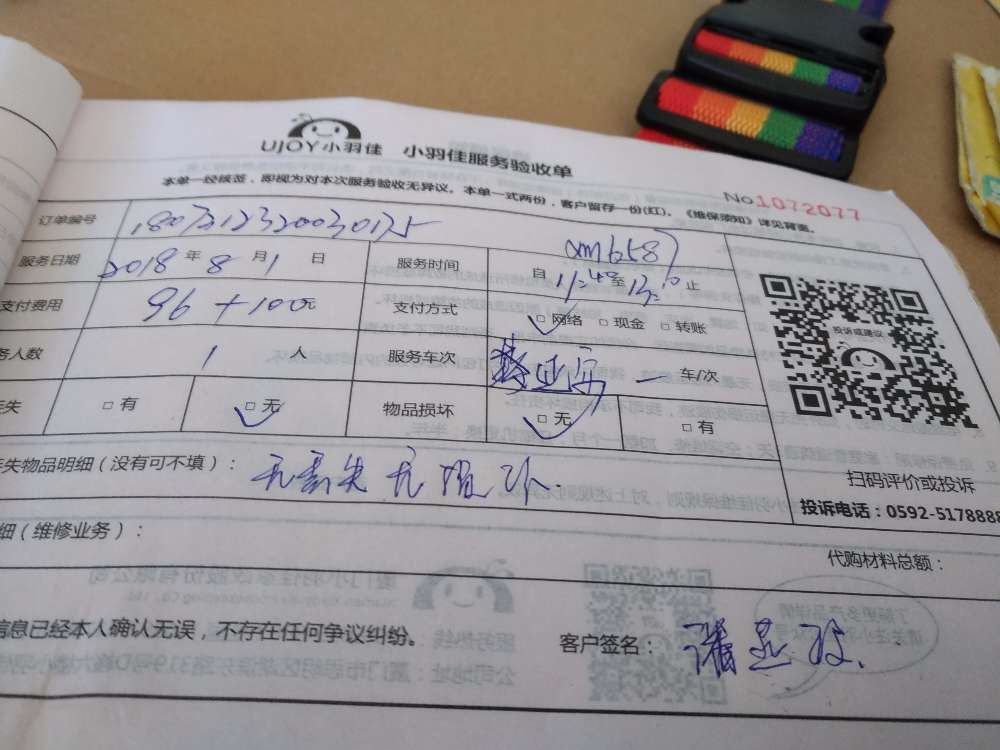 UJOY小羽佳 小羽佳服务验收单
本单一经核签，即视为对本次服务验收无异议。本单一式两份，客户留存一份(红)。《维保须知》详见背面。
No 1072077
订单编号
xm6587
服务日期 2018 年 8 月 1 日 服务时间 自 11:40 至 13:10 止
支付费用 96+100元 支付方式 □网络 □现金 □转账
务人数 1 人 服务车次 一 车/次
失 □有 □无 物品损坏 □无 □有
失物品明细（没有可不填）： 无丢失无损坏
投诉或建议
扫码评价或投诉
投诉电话：0592-5178888
细（维修业务）：
代购材料总额：
信息已经本人确认无误，不存在任何争议纠纷。 客户签名：